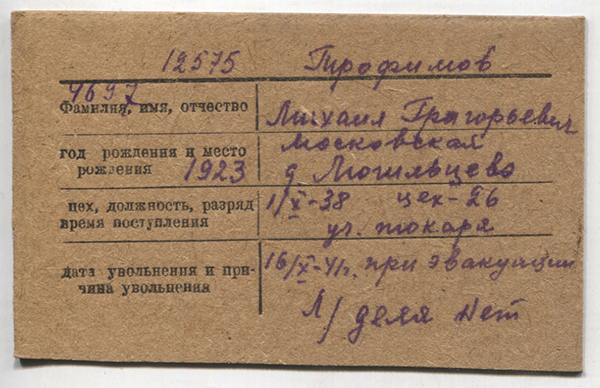 12575 Трофимов
4697
Фамилия, имя, отчество Михаил Григорьевич
год рождения и место Московская
рождения 1923 д. Могильцево
цех, должность, разряд 1/X-38 цех-26
время поступления уч. токаря
дата увольнения и при- 16/X-41г. при эвакуации
чина увольнения Л/дела нет